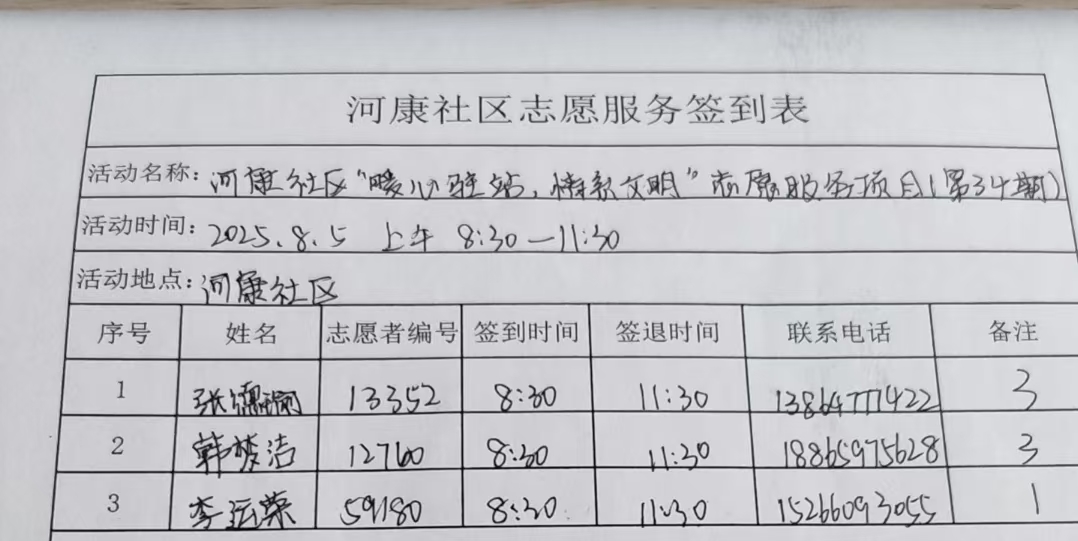 河康社区志愿服务签到表
活动名称：河康社区“暖心驻站，情系文明”志愿服务项目（第34期）
活动时间：2025.8.5 上午 8:30—11:30
活动地点：河康社区
序号 姓名 志愿者编号 签到时间 签退时间 联系电话 备注
1 张德 13352 8:30 11:30 13864771422 3
2 韩梦洁 12760 8:30 11:30 18865975628 3
3 李运荣 59180 8:30 11:30 15266093055 1